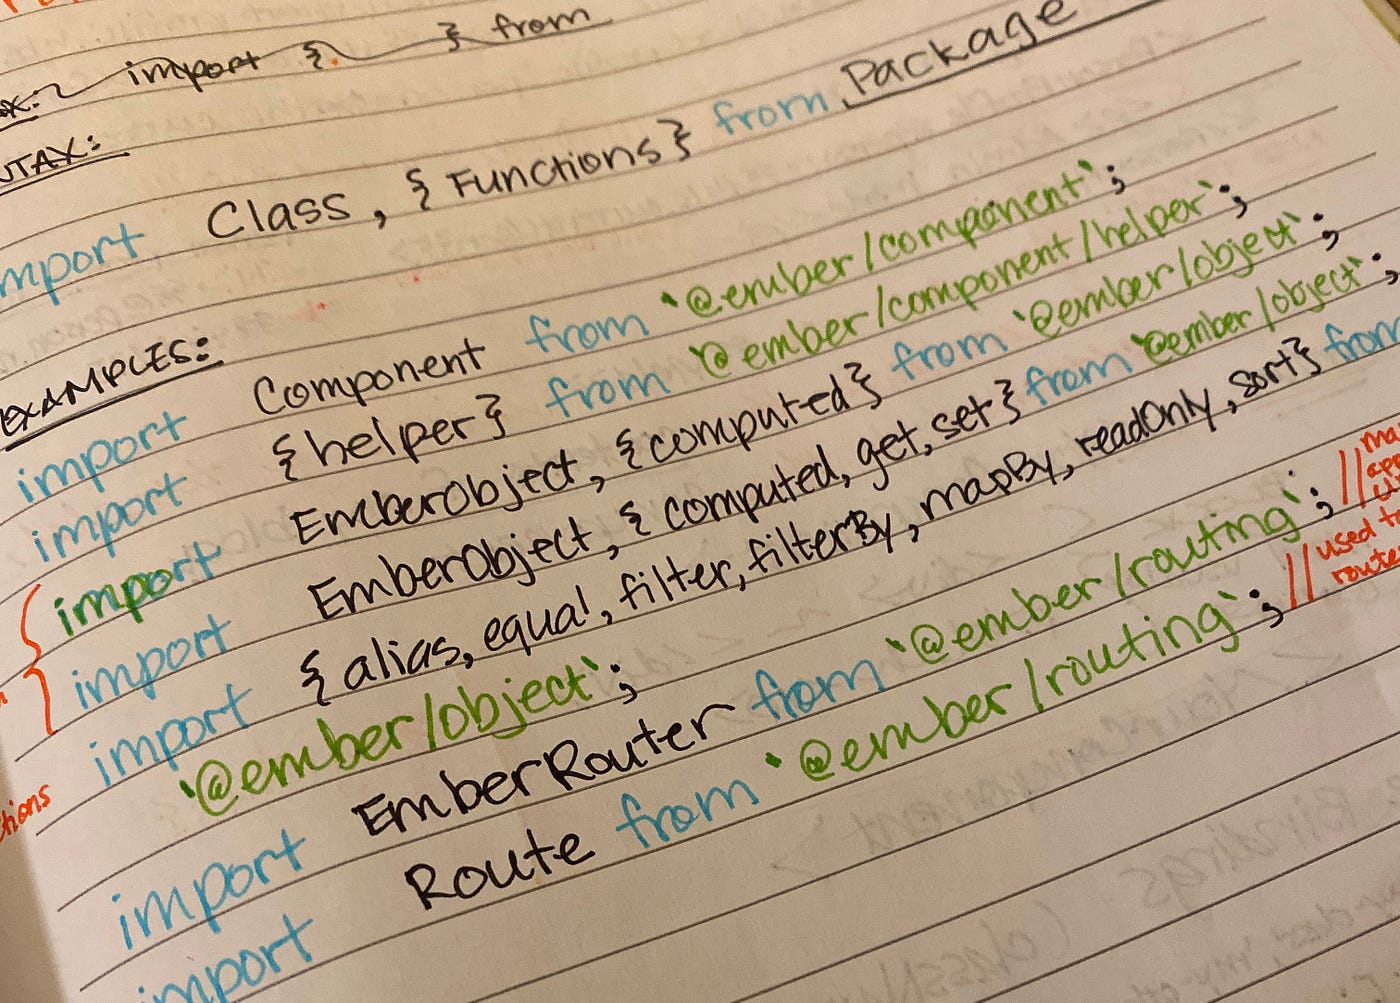 import { } from
import Class, { Functions } from Package
EXAMPLES:
import Component from `@ember/component`;
import {helper} from `@ember/component/helper`;
import EmberObject, {computed} from `@ember/object`;
import EmberObject, { computed, get, set } from `@ember/object`;
import { alias, equal, filter, filterBy, mapBy, readOnly, sort} from
`@ember/object`;
import EmberRouter from `@ember/routing`; //
import Route from `@ember/routing`; // used